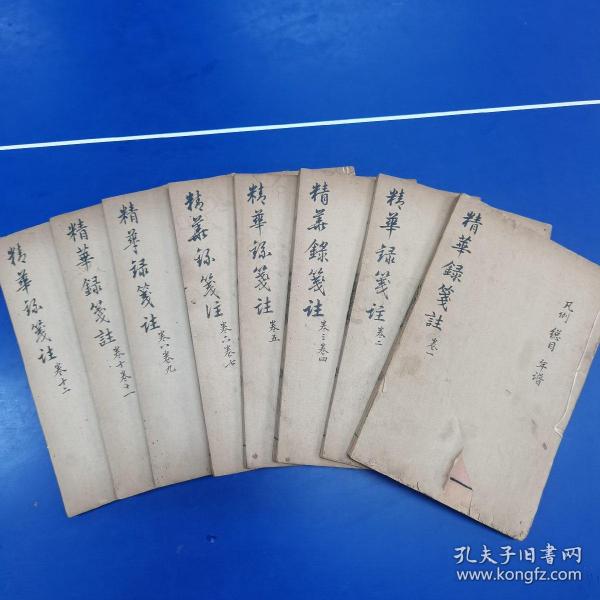 精華録箋註
卷一
凡例 總目 年譜
精華録箋註
卷二
精華錄箋註
卷三卷四
精華録箋註
卷五
精華録箋注
卷六卷七
精華录箋註
卷八卷九
精華録箋註
卷十卷十一
精華録箋註
卷十二
孔夫子旧书网
www.kongfz.com